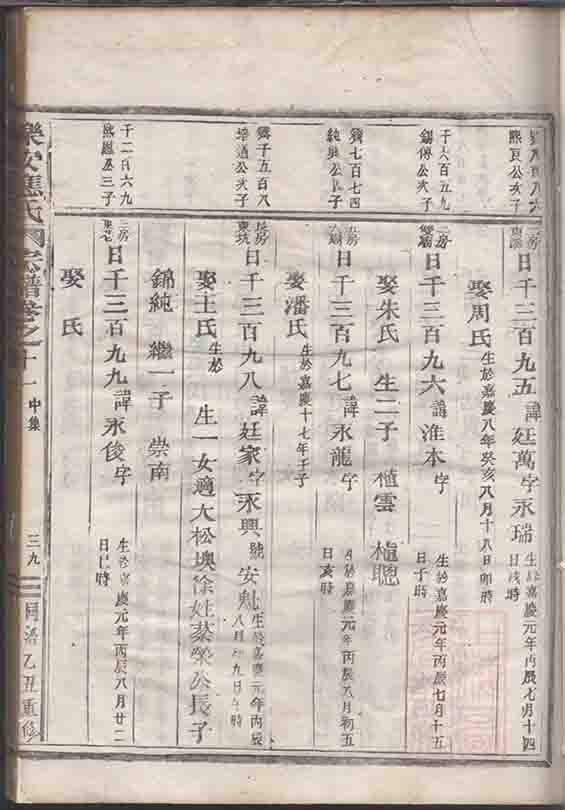 熙良公次子
日千三百九五 諱廷萬字永瑞 生於嘉慶元年丙辰七月十四
日戌時
娶周氏 生於嘉慶八年癸亥八月十八日卯時
千六百五九
錫傅公次子
日千三百九六 諱淮本字 生於嘉慶元年丙辰七月十五
日子時
娶朱氏 生二子 植雲 植聰
七百七四
純 公長子
日千三百九七 諱永龍字 生於嘉慶元年丙辰八月初五
日亥時
娶潘氏 生於嘉慶十七年壬子
五百八
公次子
東坑
日千三百九八 諱廷家字永興號安魁 生於嘉慶元年丙辰
八月 九日午時
娶王氏 生於
生一女適大松墺徐姓蔡榮公長子
錦純 繼一子 崇南
千二百六九
熙恩公三子
日千三百九九 諱永俊字 生於嘉慶元年丙辰八月廿二
日巳時
娶 氏
樂安 氏 宗譜卷之十一 中集
三九
同治乙丑重修